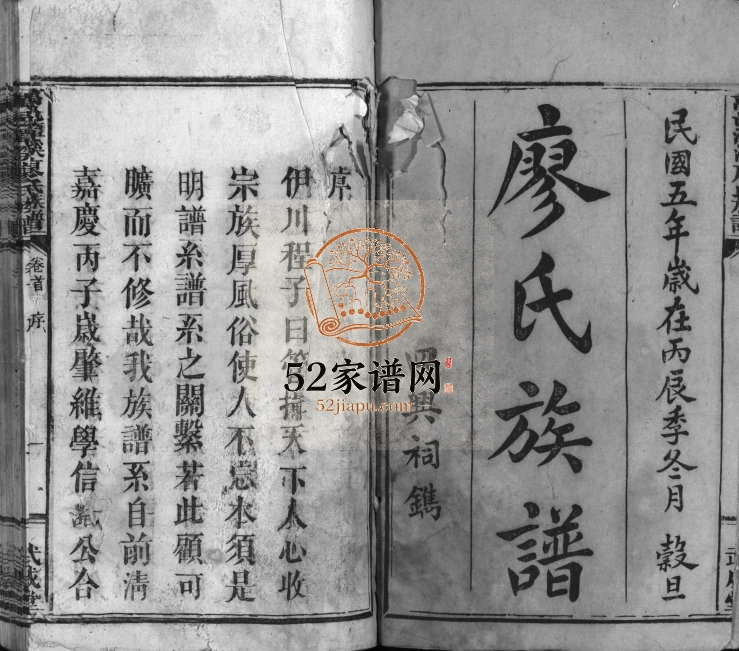 民國五年歲在丙辰季冬月 穀旦
廖氏族譜
興祠鐫
序
伊川程子曰管攝天下人心收
宗族厚風俗使人不忘本須是
明譜系譜系之關繫若此顧可
曠而不修哉我族譜系自前清
嘉慶丙子歲肇維學信諸公合
氏族譜
卷首 序
一
武威堂
52家谱网
52jiapu.com